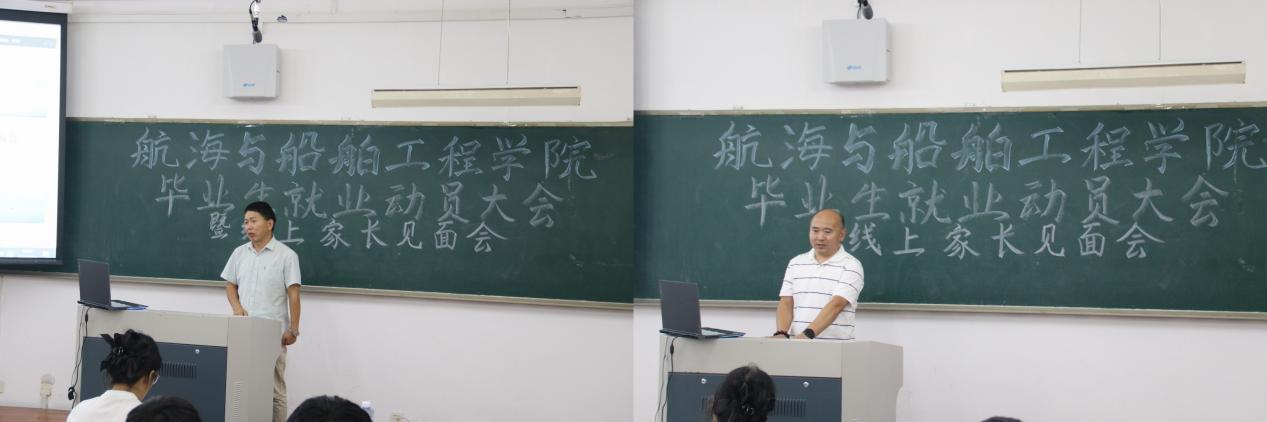 航海与船舶工程学院
毕业生就业动员大会
暨线上家长见面会
航海与船舶工程学院
毕业生就业动员大会
线上家长见面会